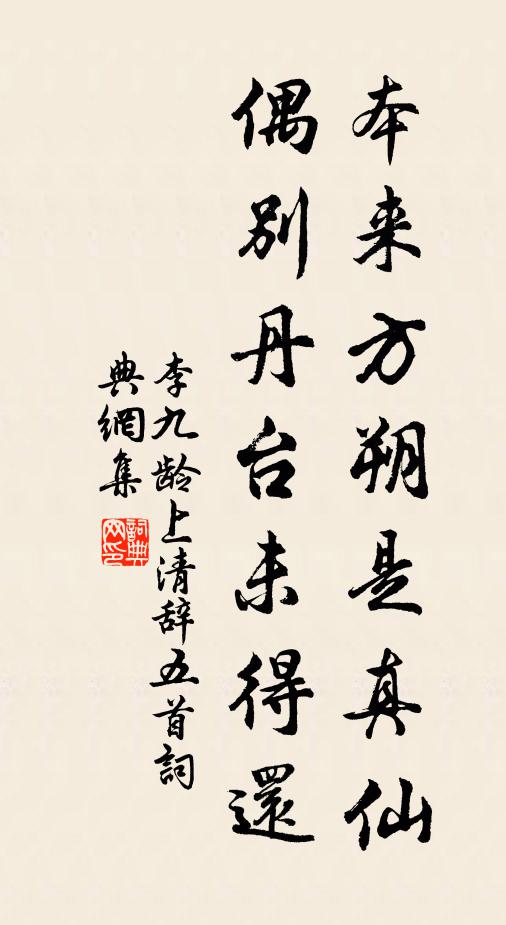 本来方朔是真仙
偶别丹台未得還
李九龄上清辞五首詞
典網集
詞典網印